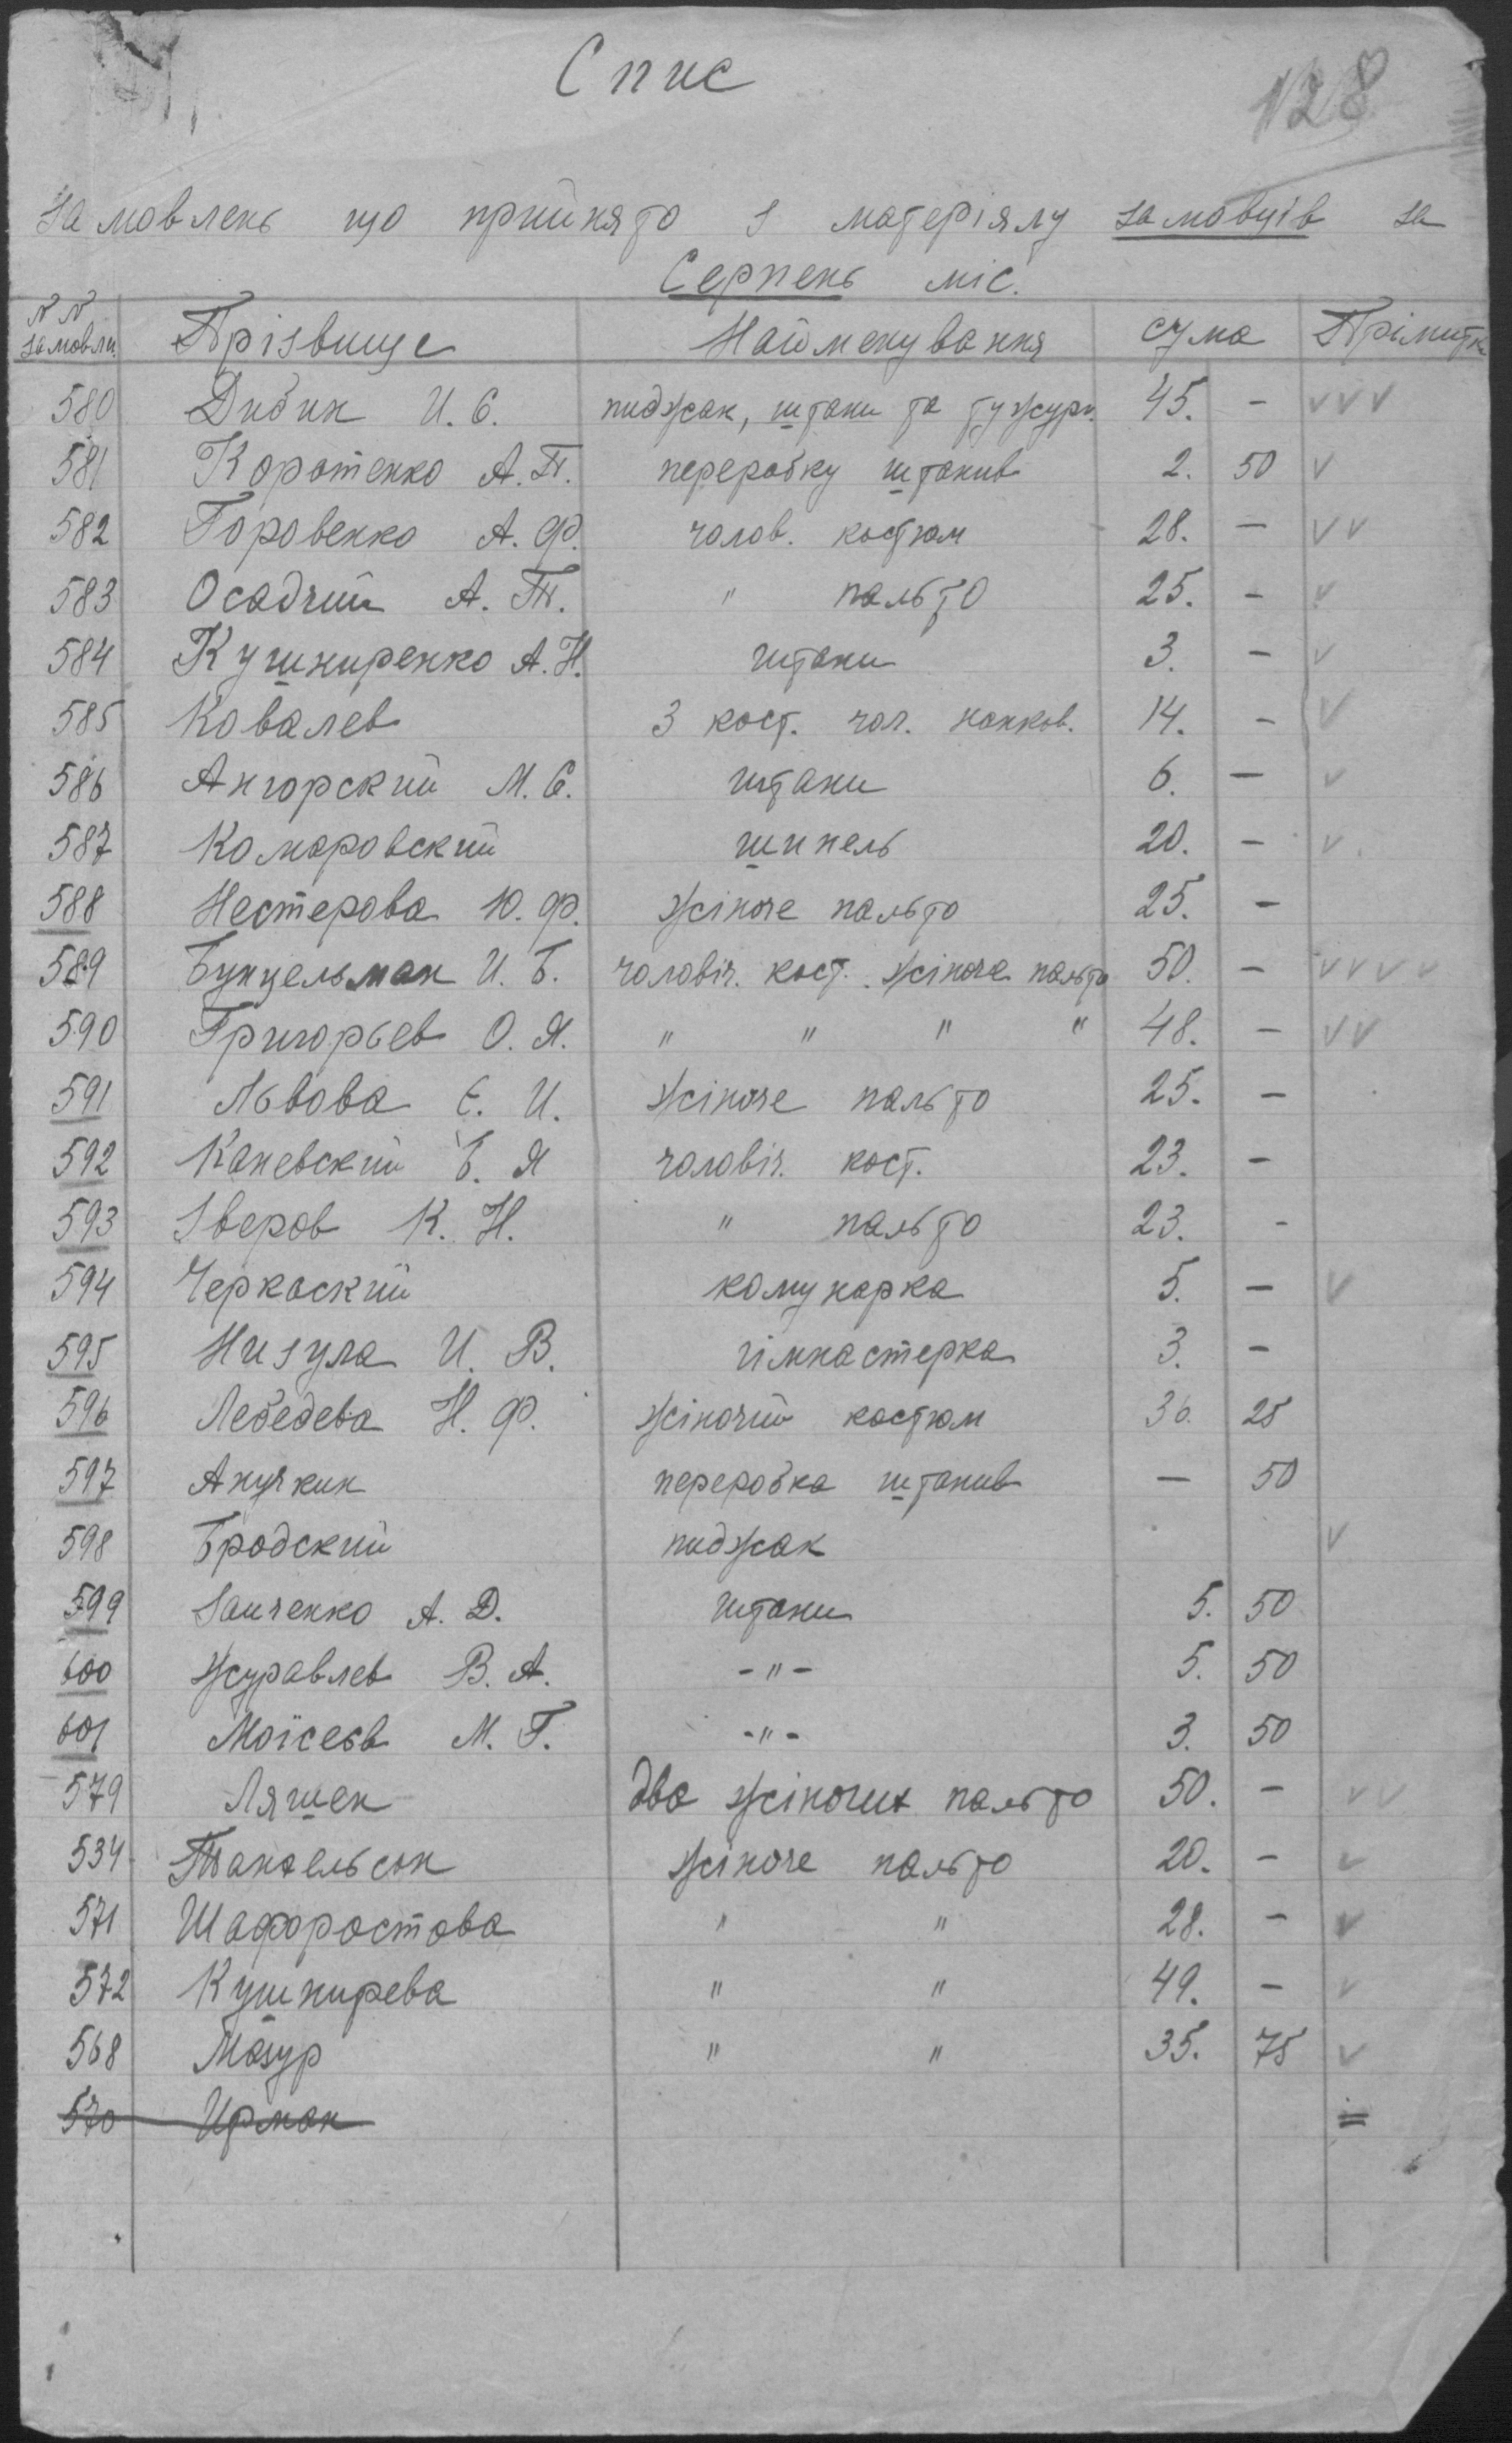 Спис
128
Замовлень що прийнято з матеріялу замовців за
Серпень міс.
N N замовлн. Прізвище Найменування сума Прімитк
580 Дибик И. Є. пиджак, штани та тужурк. 45. — v v v
581 Коротенко А. П. переробку штанив 2. 50 v
582 Горовенко А. Ф. чолов. костюм 28. — v v
583 Осадчий А. Т. " пальто 25. — v
584 Кушниренко А. Н. штани 3. — v
585 Ковалев 3 кост. чол. нанков. 14. — v
586 Ангорский М. Є. штани 6. — v
587 Комаровский шинель 20. — v
588 Нестерова Ю. Ф. жіноче пальто 25. —
589 Бунцельман И. Б. чоловіч. кост. жіноче пальто 50. — v v v v
590 Григорьев О. Я. " " " " 48. — v v
591 Львова Є. И. жіноче пальто 25. —
592 Каневский Б. Я чоловіч. кост. 23. —
593 Зверов К. Н. " пальто 23. -
594 Черкаский комунарка 5. — v
595 Низула И. В. гімнастерка 3. —
596 Лебедева Н. Ф. жіночий костюм 30. 25
597 Анучкин переробка штанив — 50
598 Бродский пиджак v
599 Заиченко А. Д. штани 5. 50
600 Журавлев В. А. -"- 5. 50
601 Моісеєв М. Г. -"- 3. 50
579 Ляшек два жіночих пальто 50. — v v
534 жіноче пальто 20. — v
571 Шафоростова " " 28. — v
572 Кушнирева " " 49. — v
568 Мазур " " 35. 75 v
570 Ирман =